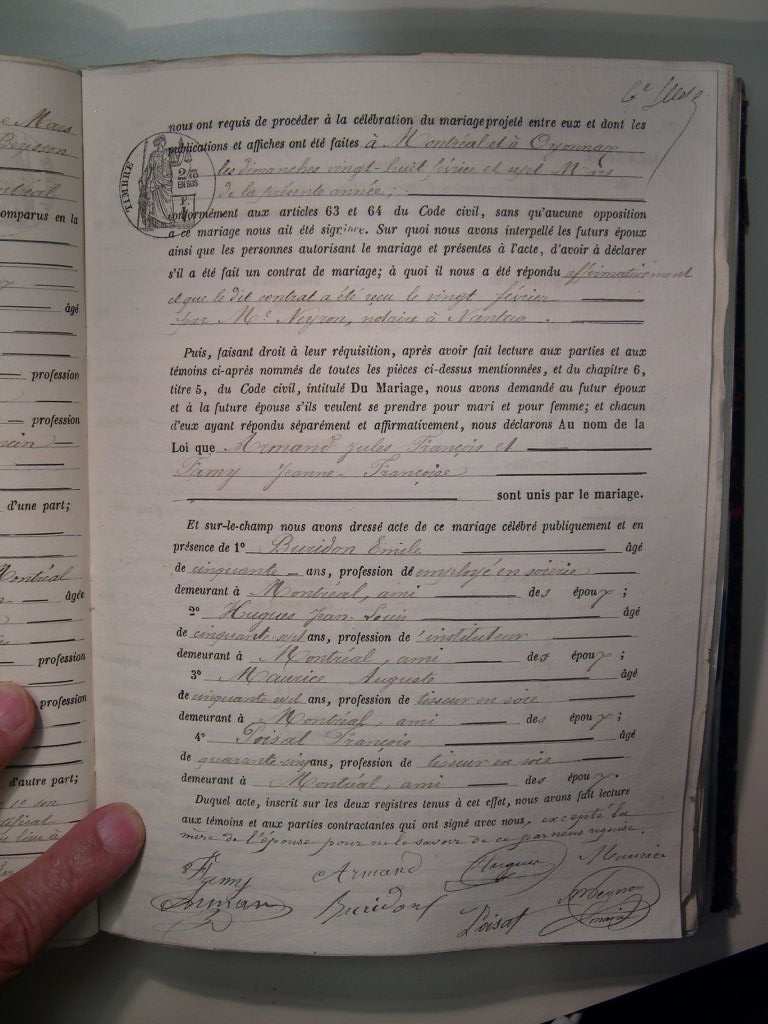 nous ont requis de procéder à la célébration du mariage projeté entre eux et dont les
publications et affiches ont été faites à Montréal et à Oyonnax
les dimanches vingt-huit février et sept Mars
de la présente année ;
conformément aux articles 63 et 64 du Code civil, sans qu'aucune opposition
à ce mariage nous ait été signifiée. Sur quoi nous avons interpellé les futurs époux
ainsi que les personnes autorisant le mariage et présentes à l'acte, d'avoir à déclarer
s'il a été fait un contrat de mariage; à quoi il nous a été répondu affirmativement
et que le dit contrat a été reçu le vingt février
par Me Neyron, notaire à Nantua.
Puis, faisant droit à leur réquisition, après avoir fait lecture aux parties et aux
témoins ci-après nommés de toutes les pièces ci-dessus mentionnées, et du chapitre 6,
titre 5, du Code civil, intitulé Du Mariage, nous avons demandé au futur époux
et à la future épouse s'ils veulent se prendre pour mari et pour femme; et chacun
d'eux ayant répondu séparément et affirmativement, nous déclarons Au nom de la
Loi que Armand Jules François et
Famy Jeanne-Françoise
sont unis par le mariage.
Et sur-le-champ nous avons dressé acte de ce mariage célébré publiquement et en
présence de 1° Buridon Emile âgé
de cinquante ans, profession d'employé en soierie
demeurant à Montréal, ami des époux ;
2° Hugues Jean Louis âgé
de cinquante sept ans, profession de l'instituteur
demeurant à Montréal, ami des époux ;
3° Maurice Auguste âgé
de cinquante sept ans, profession de tisseur en soie
demeurant à Montréal, ami des époux ;
4° Poisat François âgé
de quarante cinq ans, profession de tisseur en soie
demeurant à Montréal, ami des époux.
Duquel acte, inscrit sur les deux registres tenus à cet effet, nous avons fait lecture
aux témoins et aux parties contractantes qui ont signé avec nous, excepté la
mère de l'épouse pour ne le savoir de ce par nous requise.
Famy Armand Hugues Maurice
Buridon Poisat
maire
TIMBRE
Mars
Montréal
comparus en la
âgé
profession
profession
d'une part;
Montréal
âgée
profession
profession
d'autre part;